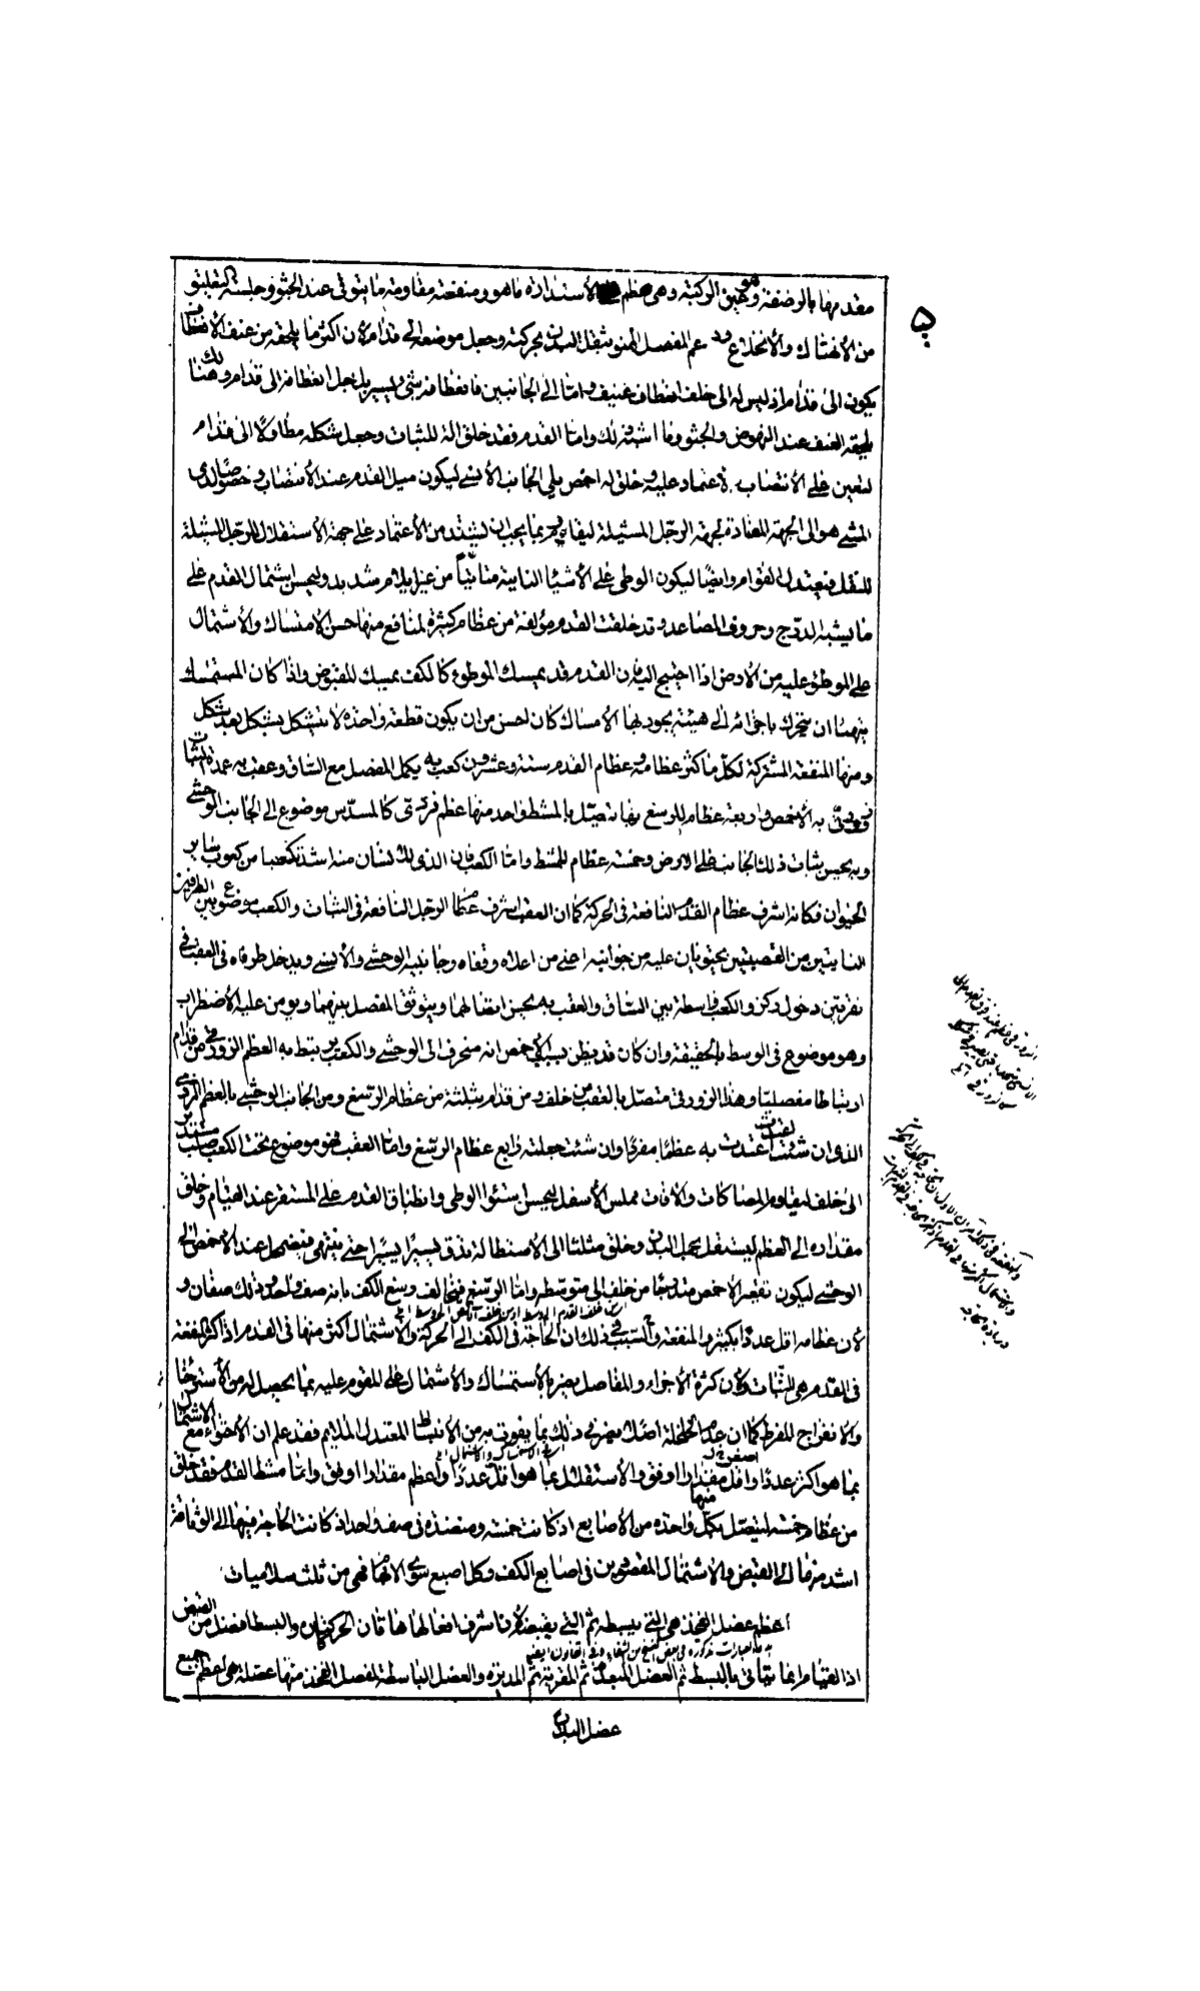 مقدمها بالرضفة وهو عين الركبة وهي عظم الى الاستدارة ما هو ومنفعته مقاومة ما يتوقى عند الجثو وجلسة التعلق
من الانهتاك والانخلاع ودعم المفصل الممنو بثقل البدن بحركته وجعل موضعه الى قدام لان اكثر ما يلحقه من عنف الانعطاف
يكون الى قدام اذ ليس له الى خلف انعطاف عنيف واما الى الجانبين فانعطافه شئ يسير بل جعل انعطافه الى قدام وهنالك
يلحقه العنف عند النهوض والجثو وما اشبه ذلك واما القدم فقد خلق آلة للثبات وجعل شكله مطاولا الى قدام
لتعين على الانتصاب بالاعتماد عليه وخلق له اخمص يلي الجانب الانسي ليكون ميل القدم عند الانتصاب وخصوصا لدى
المشي هو الى الجهة المضادة لجهة الرجل المشيلة ليقاوم بما يجب ان يشتد من الاعتماد على جهة الاستقلال الرجل المشيلة
للنقل فيعتدل القوام وايضا ليكون الوطئ على الاشياء الناتية متأتيا من غير ايلام شديد وليحسن اشتمال القدم على
ما يشبه الدرج وحروف المصاعد وقد خلقت القدم مؤلفة من عظام كثيرة لمنافع منها حسن الاستمساك والاشتمال
على الموطؤ عليه من الارض اذا احتيج اليه فان القدم قد يمسك الموطوء كالكف يمسك المقبوض واذا كان المستمسك
يتهيأ ان يتحرك باجزائه الى هيئة يجود بها الامساك كان احسن من ان يكون قطعة واحدة لا يتشكل بشكل بعد شكل
ومنها المنفعة المشتركة لكل ما كثر عظامه وعظام القدم ستة وعشرون كعب به يكمل المفصل مع الساق وعقب به عمدة الثبات
وزورقي به الاخمص واربعة عظام للرسغ بها تتصل بالمشط واحد منها عظم نردي كالمسدس موضوع الى الجانب الوحشي
وبه يحسن ثبات ذلك الجانب على الارض وخمسة عظام للمشط واما الكعب فان الذي للانسان منه اشد تكعبا من كعوب ساير
الحيوان فكانه اشرف عظام القدم النافعة في الحركة كما ان العقب اشرف عظام الرجل النافعة في الثبات والكعب موضوع بين الطرفين
الناتيين من القصبتين يحتويان عليه من جوانبه اعني من اعلاه وقفاه وجانبيه الوحشي والانسي ويدخل طرفاه في العقب في
نقرتين دخول ركز والكعب واسطة بين الساق والعقب به يحسن اتصالهما ويتوثق المفصل بينهما ويؤمن عليه الاضطراب
وهو موضوع في الوسط بالحقيقة وان كان قد يظن بسبب الاخمص انه منحرف الى الوحشي والكعب يرتبط به العظم الزورقي من قدام
ارتباطا مفصليا وهذا الزورقي متصل بالعقب من خلف ومن قدام بثلثة من عظام الرسغ ومن الجانب الوحشي بالعظم النردي
الذي ان شئت اعتددت به عظما مفردا وان شئت جعلته رابع عظام الرسغ واما العقب فهو موضوع تحت الكعب صلب مستدير
الى خلف ليقاوم المصاكات والافات مملس الاسفل ليحسن استواء الوطي وانطباق القدم على المستقر عند القيام وخلق
مقداره الى العظم ليستقل بحمل البدن وخلق مثلثا الى الاستطالة يدق يسيرا يسيرا حتى ينتهي فيضمحل عند الاخمص الى
الوحشي ليكون تقعير الاخمص متدرجا من خلف الى متوسطه واما الرسغ فيخالف رسغ الكف بانه صف واحد وذلك صفان و
لان عظامه اقل عددا بكثير والمنفعة والسبب في ذلك ان الحاجة في الكف الى الحركة والاشتمال اكثر منها في القدم اذ اكثر المنفعة
في القدم هي الثبات ولان كثرة الاجزاء والمفاصل يضر بالاستمساك والاشتمال على المقوم عليه بما يحصل له من الاسترخا
والانفراج المفرط كما ان عدم الخلخلة اصلا يضر في ذلك بما يفوت به من الانبساط المعتدل الملايم فقد علم ان الاحتواء مع الاشتمال
بما هو اكثر عددا واقل مقدارا اوفق والاستقلال بما هو اقل عددا واعظم مقدارا اوفق واما مشط القدم فقد خلق
من عظام خمسة ليتصل بكل واحدة منها من الاصابع اذ كانت خمسة ومنضدة في صف واحد اذ كانت الحاجة فيها الى الوثاقة
اشد منها الى القبض والاشتمال المقصودين في اصابع الكف وكل اصبع سوى الابهام فهي من ثلث سلاميات
اعظم عضل الفخذ هي التي يبسطه ثم التي يقبضه لان اشرف افعالها هاتان الحركتان والبسط افضل من القبض
اذ القيام انما يتأتى بالبسط ثم العضل المبعدة ثم المقربة ثم المديرة والعضل الباسطة لمفصل الفخذ منها عضلة هي اعظم جميع
عضل البدن